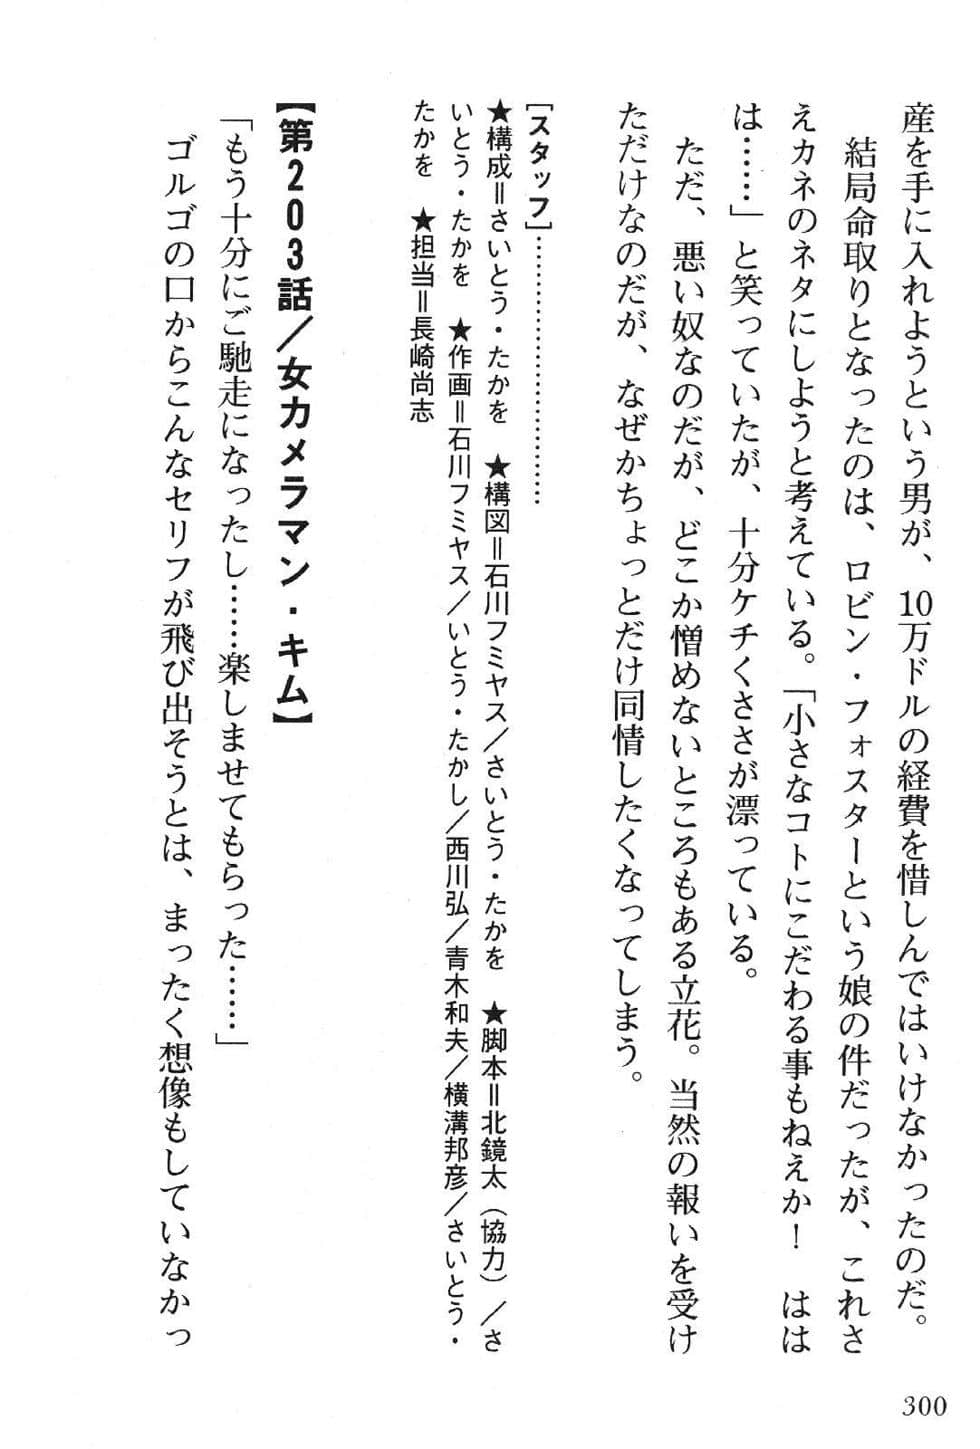 産を手に入れようという男が、10万ドルの経費を惜しんではいけなかったのだ。
　結局命取りとなったのは、ロビン・フォスターという娘の件だったが、これさ
えカネのネタにしようと考えている。「小さなコトにこだわる事もねえか！　はは
は……」と笑っていたが、十分ケチくささが漂っている。
　ただ、悪い奴なのだが、どこか憎めないところもある立花。当然の報いを受け
ただけなのだが、なぜかちょっとだけ同情したくなってしまう。
［スタッフ］……………………………
★構成＝さいとう・たかを　★構図＝石川フミヤス／さいとう・たかを　★脚本＝北鏡太（協力）／さ
いとう・たかを　★作画＝石川フミヤス／いとう・たかし／西川弘／青木和夫／横溝邦彦／さいとう・
たかを　★担当＝長崎尚志
【第203話／女カメラマン・キム】
「もう十分にご馳走になったし……楽しませてもらった……」
　ゴルゴの口からこんなセリフが飛び出そうとは、まったく想像もしていなかっ
300